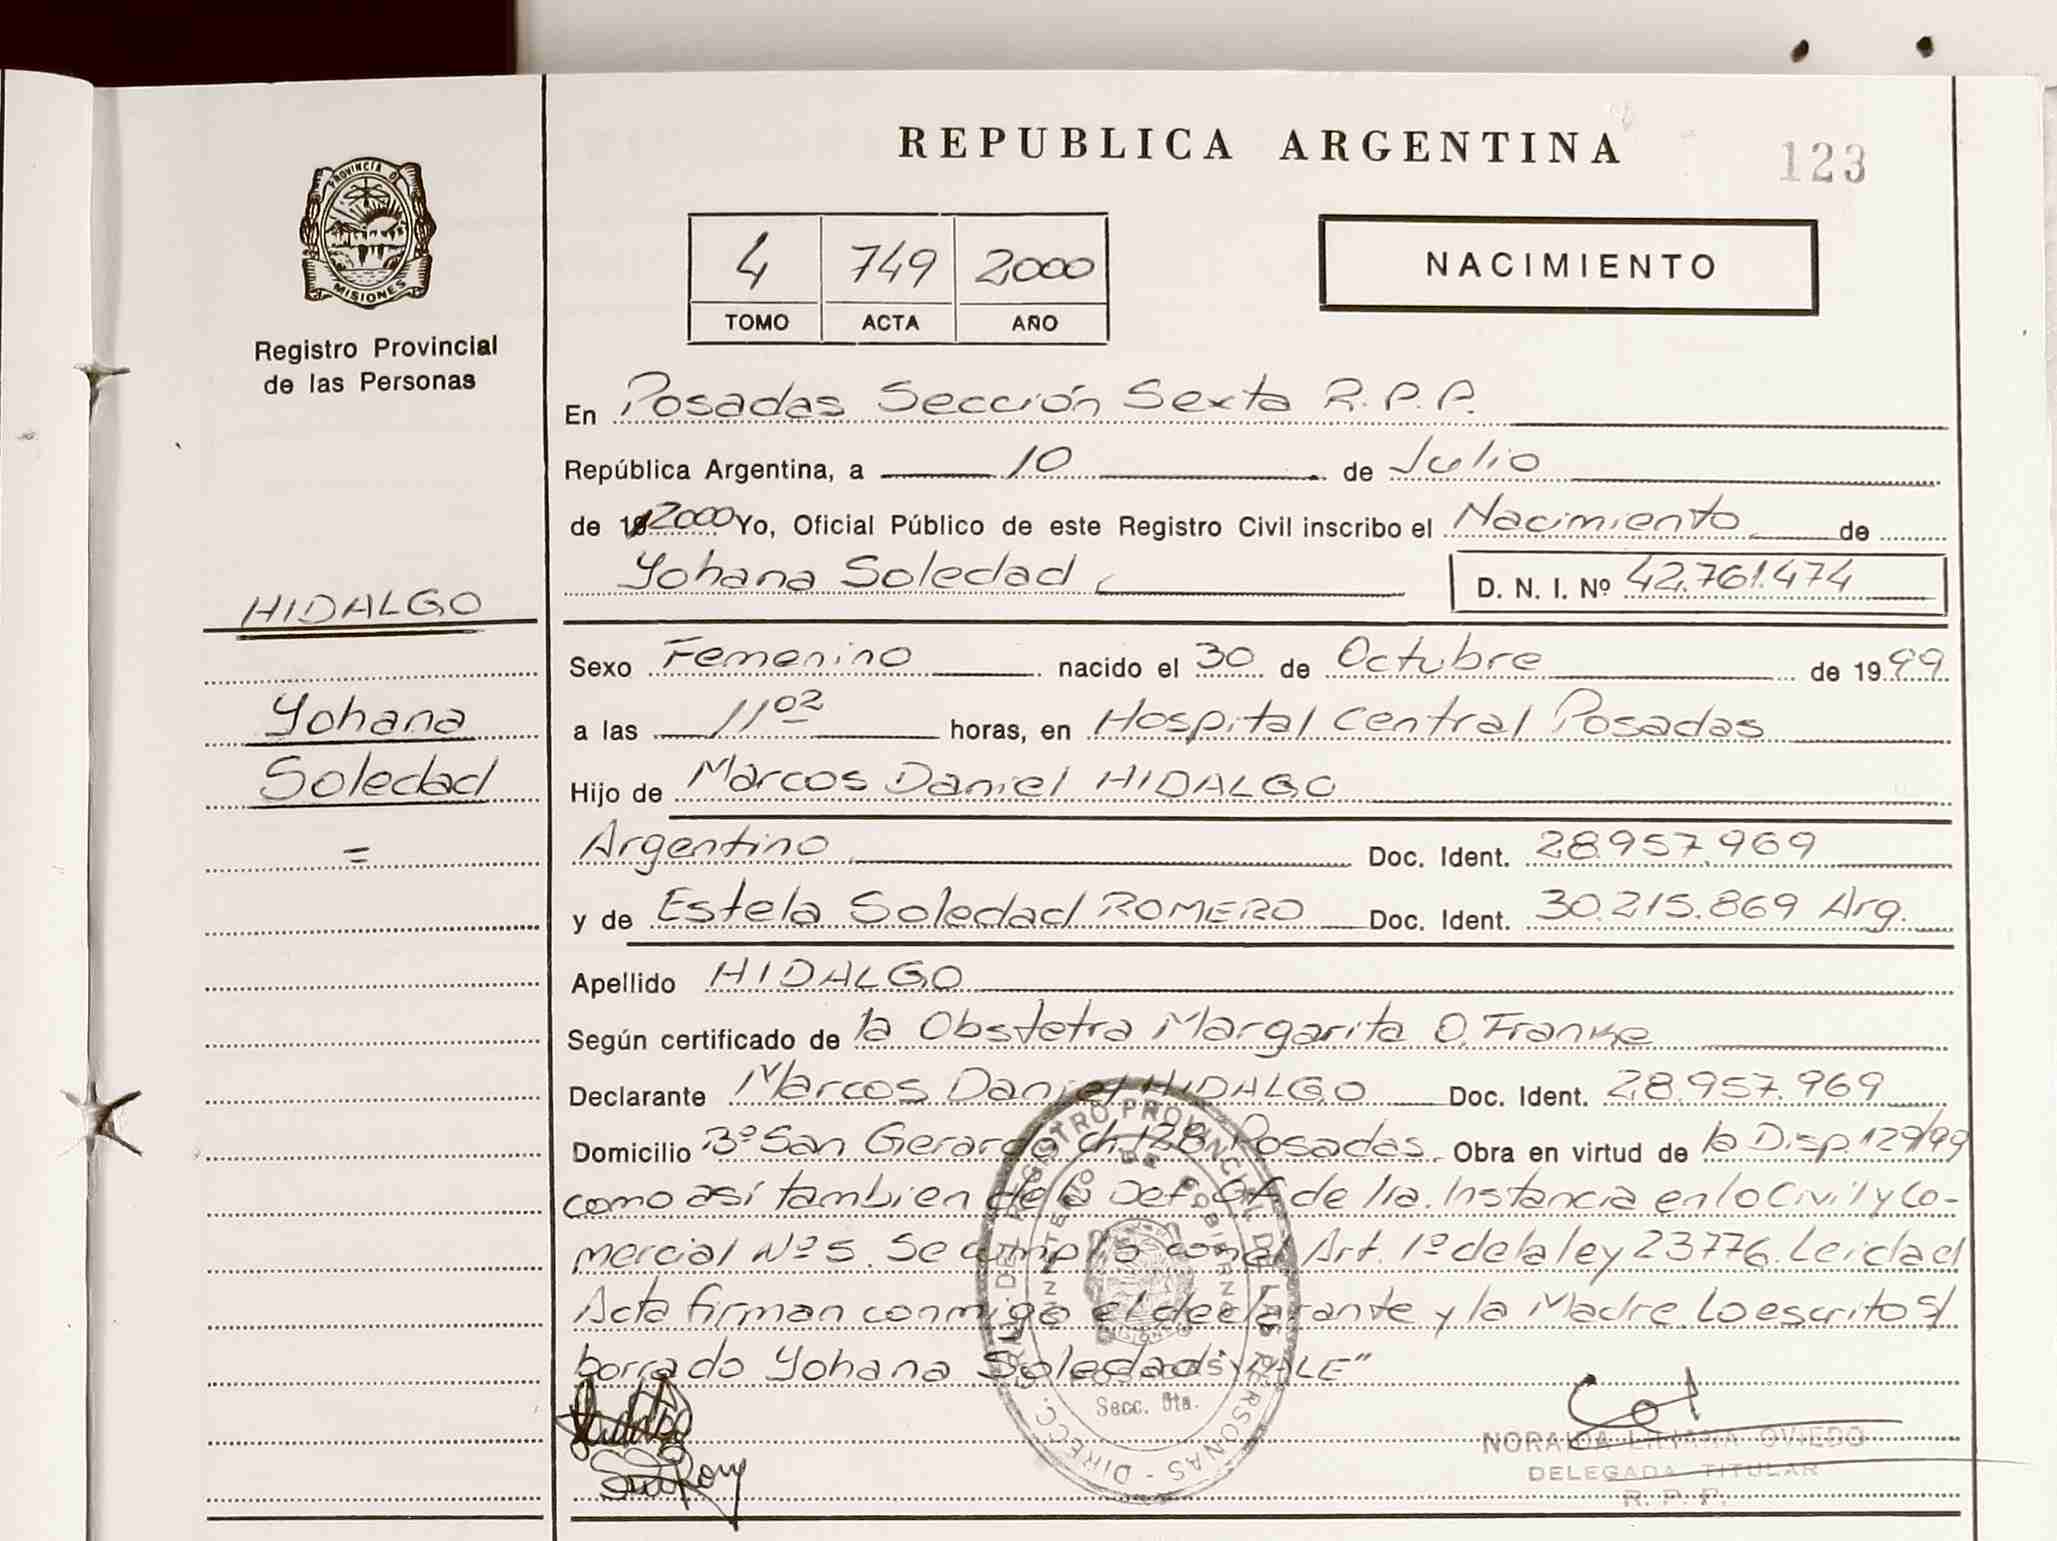 REPUBLICA ARGENTINA
123
PROVINCIA D
MISIONES
Registro Provincial
de las Personas
4 749 2000
TOMO ACTA AÑO
NACIMIENTO
En Posadas Sección Sexta R.P.P.
República Argentina, a 10 de Julio
de 2000 Yo, Oficial Público de este Registro Civil inscribo el Nacimiento de
Yohana Soledad D. N. I. Nº 42.761.474
HIDALGO
Yohana
Soledad
=
Sexo Femenino nacido el 30 de Octubre de 1999
a las 11 02 horas, en Hospital Central Posadas
Hijo de Marcos Daniel HIDALGO
Argentino Doc. Ident. 28.957.969
y de Estela Soledad ROMERO Doc. Ident. 30.215.869 Arg.
Apellido HIDALGO
Según certificado de la Obstetra Margarita O. Franke
Declarante Marcos Daniel HIDALGO Doc. Ident. 28.957.969
Domicilio Bº San Gerardo ch 128 Posadas. Obra en virtud de la Disp. 129/99
como así tambien de la Def. Of. de 1ra. Instancia en lo Civil y Co-
mercial Nº 5. Se cumplio con el Art. 1º de la ley 23776. Leida el
Acta firman conmigo el declarante y la Madre. Lo escrito s/
borrado Yohana Soledad: VALE"
DIRECC. GRAL. DEL REGISTRO PROVINCIAL DE LAS PERSONAS
MINISTERIO DE GOBIERNO
MISIONES
POSADAS
Secc. 6ta.
NORAIDA LILIANA OVIEDO
DELEGADA TITULAR
R. P. P.